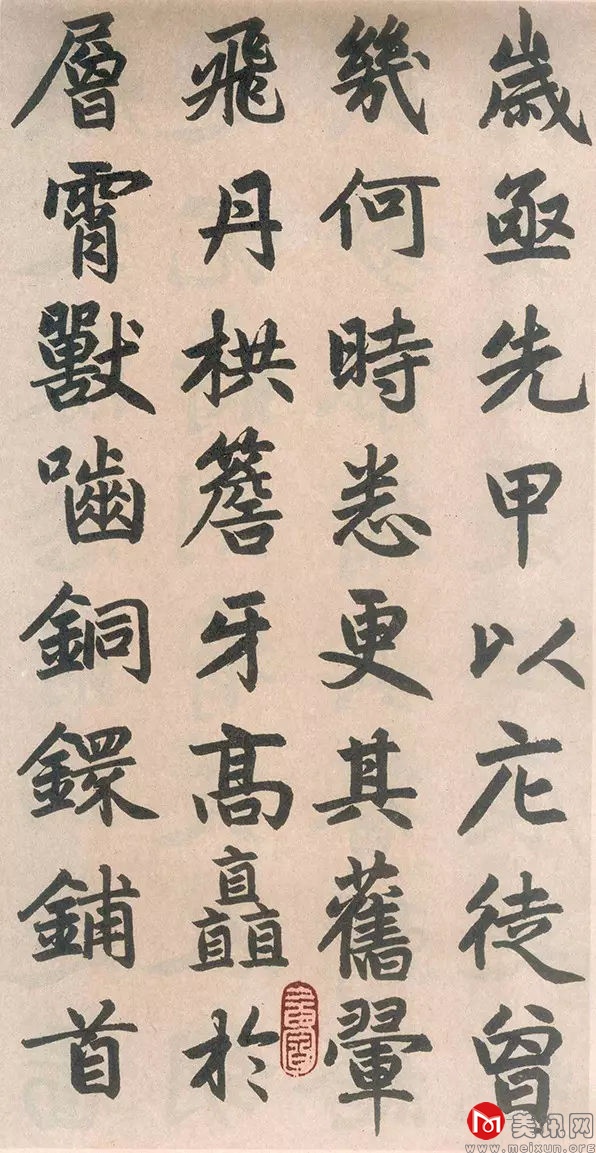 歲亟先甲以庀徒曾
幾何時悉更其舊翬
飛丹栱簷牙高矗於
層霄獸嚙銅鐶鋪首
美讯网
www.meixun.org